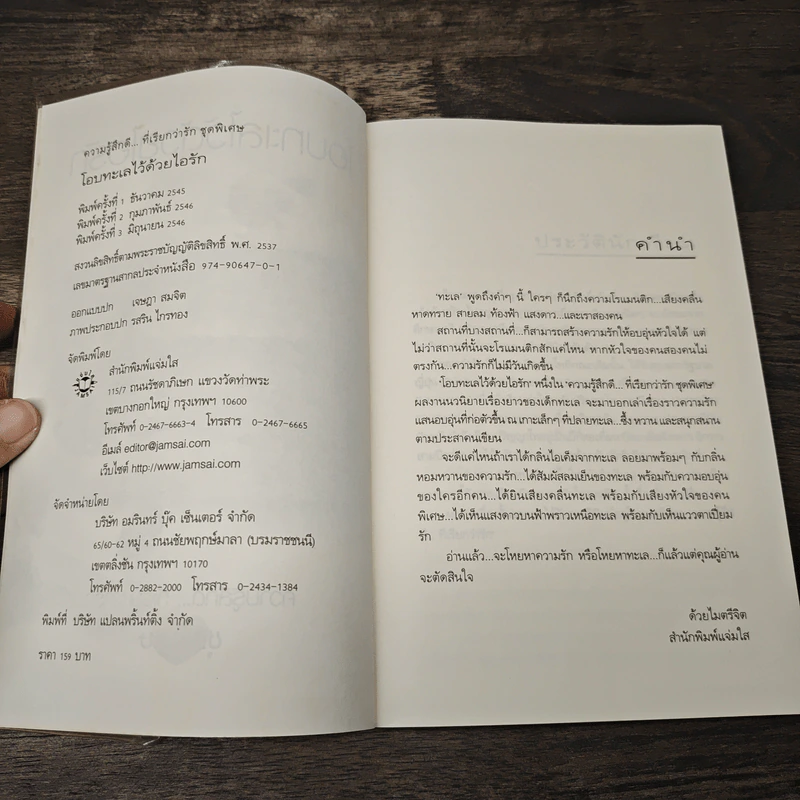 ความรู้สึกดี... ที่เรียกว่ารัก ชุดพิเศษ
โอบทะเลไว้ด้วยไอรัก
พิมพ์ครั้งที่ 1 ธันวาคม 2545
พิมพ์ครั้งที่ 2 กุมภาพันธ์ 2546
พิมพ์ครั้งที่ 3 มิถุนายน 2546
สงวนลิขสิทธิ์ตามพระราชบัญญัติลิขสิทธิ์ พ.ศ. 2537
เลขมาตรฐานสากลประจำหนังสือ 974-90647-0-1
ออกแบบปก เจษฎา สมจิต
ภาพประกอบปก รสริน ไกรทอง
จัดพิมพ์โดย
สำนักพิมพ์แจ่มใส
115/7 ถนนรัชดาภิเษก แขวงวัดท่าพระ
เขตบางกอกใหญ่ กรุงเทพฯ 10600
โทรศัพท์ 0-2467-6663-4 โทรสาร 0-2467-6665
อีเมล์ editor@jamsai.com
เว็บไซต์ http://www.jamsai.com
จัดจำหน่ายโดย
บริษัท อมรินทร์ บุ๊ค เซ็นเตอร์ จำกัด
65/60-62 หมู่ 4 ถนนชัยพฤกษ์มาลา (บรมราชชนนี)
เขตตลิ่งชัน กรุงเทพฯ 10170
โทรศัพท์ 0-2882-2000 โทรสาร 0-2434-1384
พิมพ์ที่ บริษัท แปลนพริ้นท์ติ้ง จำกัด
ราคา 159 บาท
คำนำ
'ทะเล' พูดถึงคำๆ นี้ ใครๆ ก็นึกถึงความโรแมนติก...เสียงคลื่น
หาดทราย สายลม ท้องฟ้า แสงดาว...และเราสองคน
สถานที่บางสถานที่...ก็สามารถสร้างความรักให้อบอุ่นหัวใจได้ แต่
ไม่ว่าสถานที่นั้นจะโรแมนติกสักแค่ไหน หากหัวใจของคนสองคนไม่
ตรงกัน...ความรักก็ไม่มีวันเกิดขึ้น
'โอบทะเลไว้ด้วยไอรัก' หนึ่งใน 'ความรู้สึกดี... ที่เรียกว่ารัก ชุดพิเศษ'
ผลงานนวนิยายเรื่องยาวของเด็กทะเล จะมาบอกเล่าเรื่องราวความรัก
แสนอบอุ่นที่ก่อตัวขึ้น ณ เกาะเล็กๆ ที่ปลายทะเล...ซึ้ง หวาน และสนุกสนาน
ตามประสาคนเขียน
จะดีแค่ไหนถ้าเราได้กลิ่นไอเค็มจากทะเล ลอยมาพร้อมๆ กับกลิ่น
หอมหวานของความรัก...ได้สัมผัสลมเย็นของทะเล พร้อมกับความอบอุ่น
ของใครอีกคน...ได้ยินเสียงคลื่นทะเล พร้อมกับเสียงหัวใจของคน
พิเศษ...ได้เห็นแสงดาวบนฟ้าพราวเหนือทะเล พร้อมกับเห็นแววตาเปี่ยม
รัก
อ่านแล้ว...จะโหยหาความรัก หรือโหยหาทะเล...ก็แล้วแต่คุณผู้อ่าน
จะตัดสินใจ
ด้วยไมตรีจิต
สำนักพิมพ์แจ่มใส